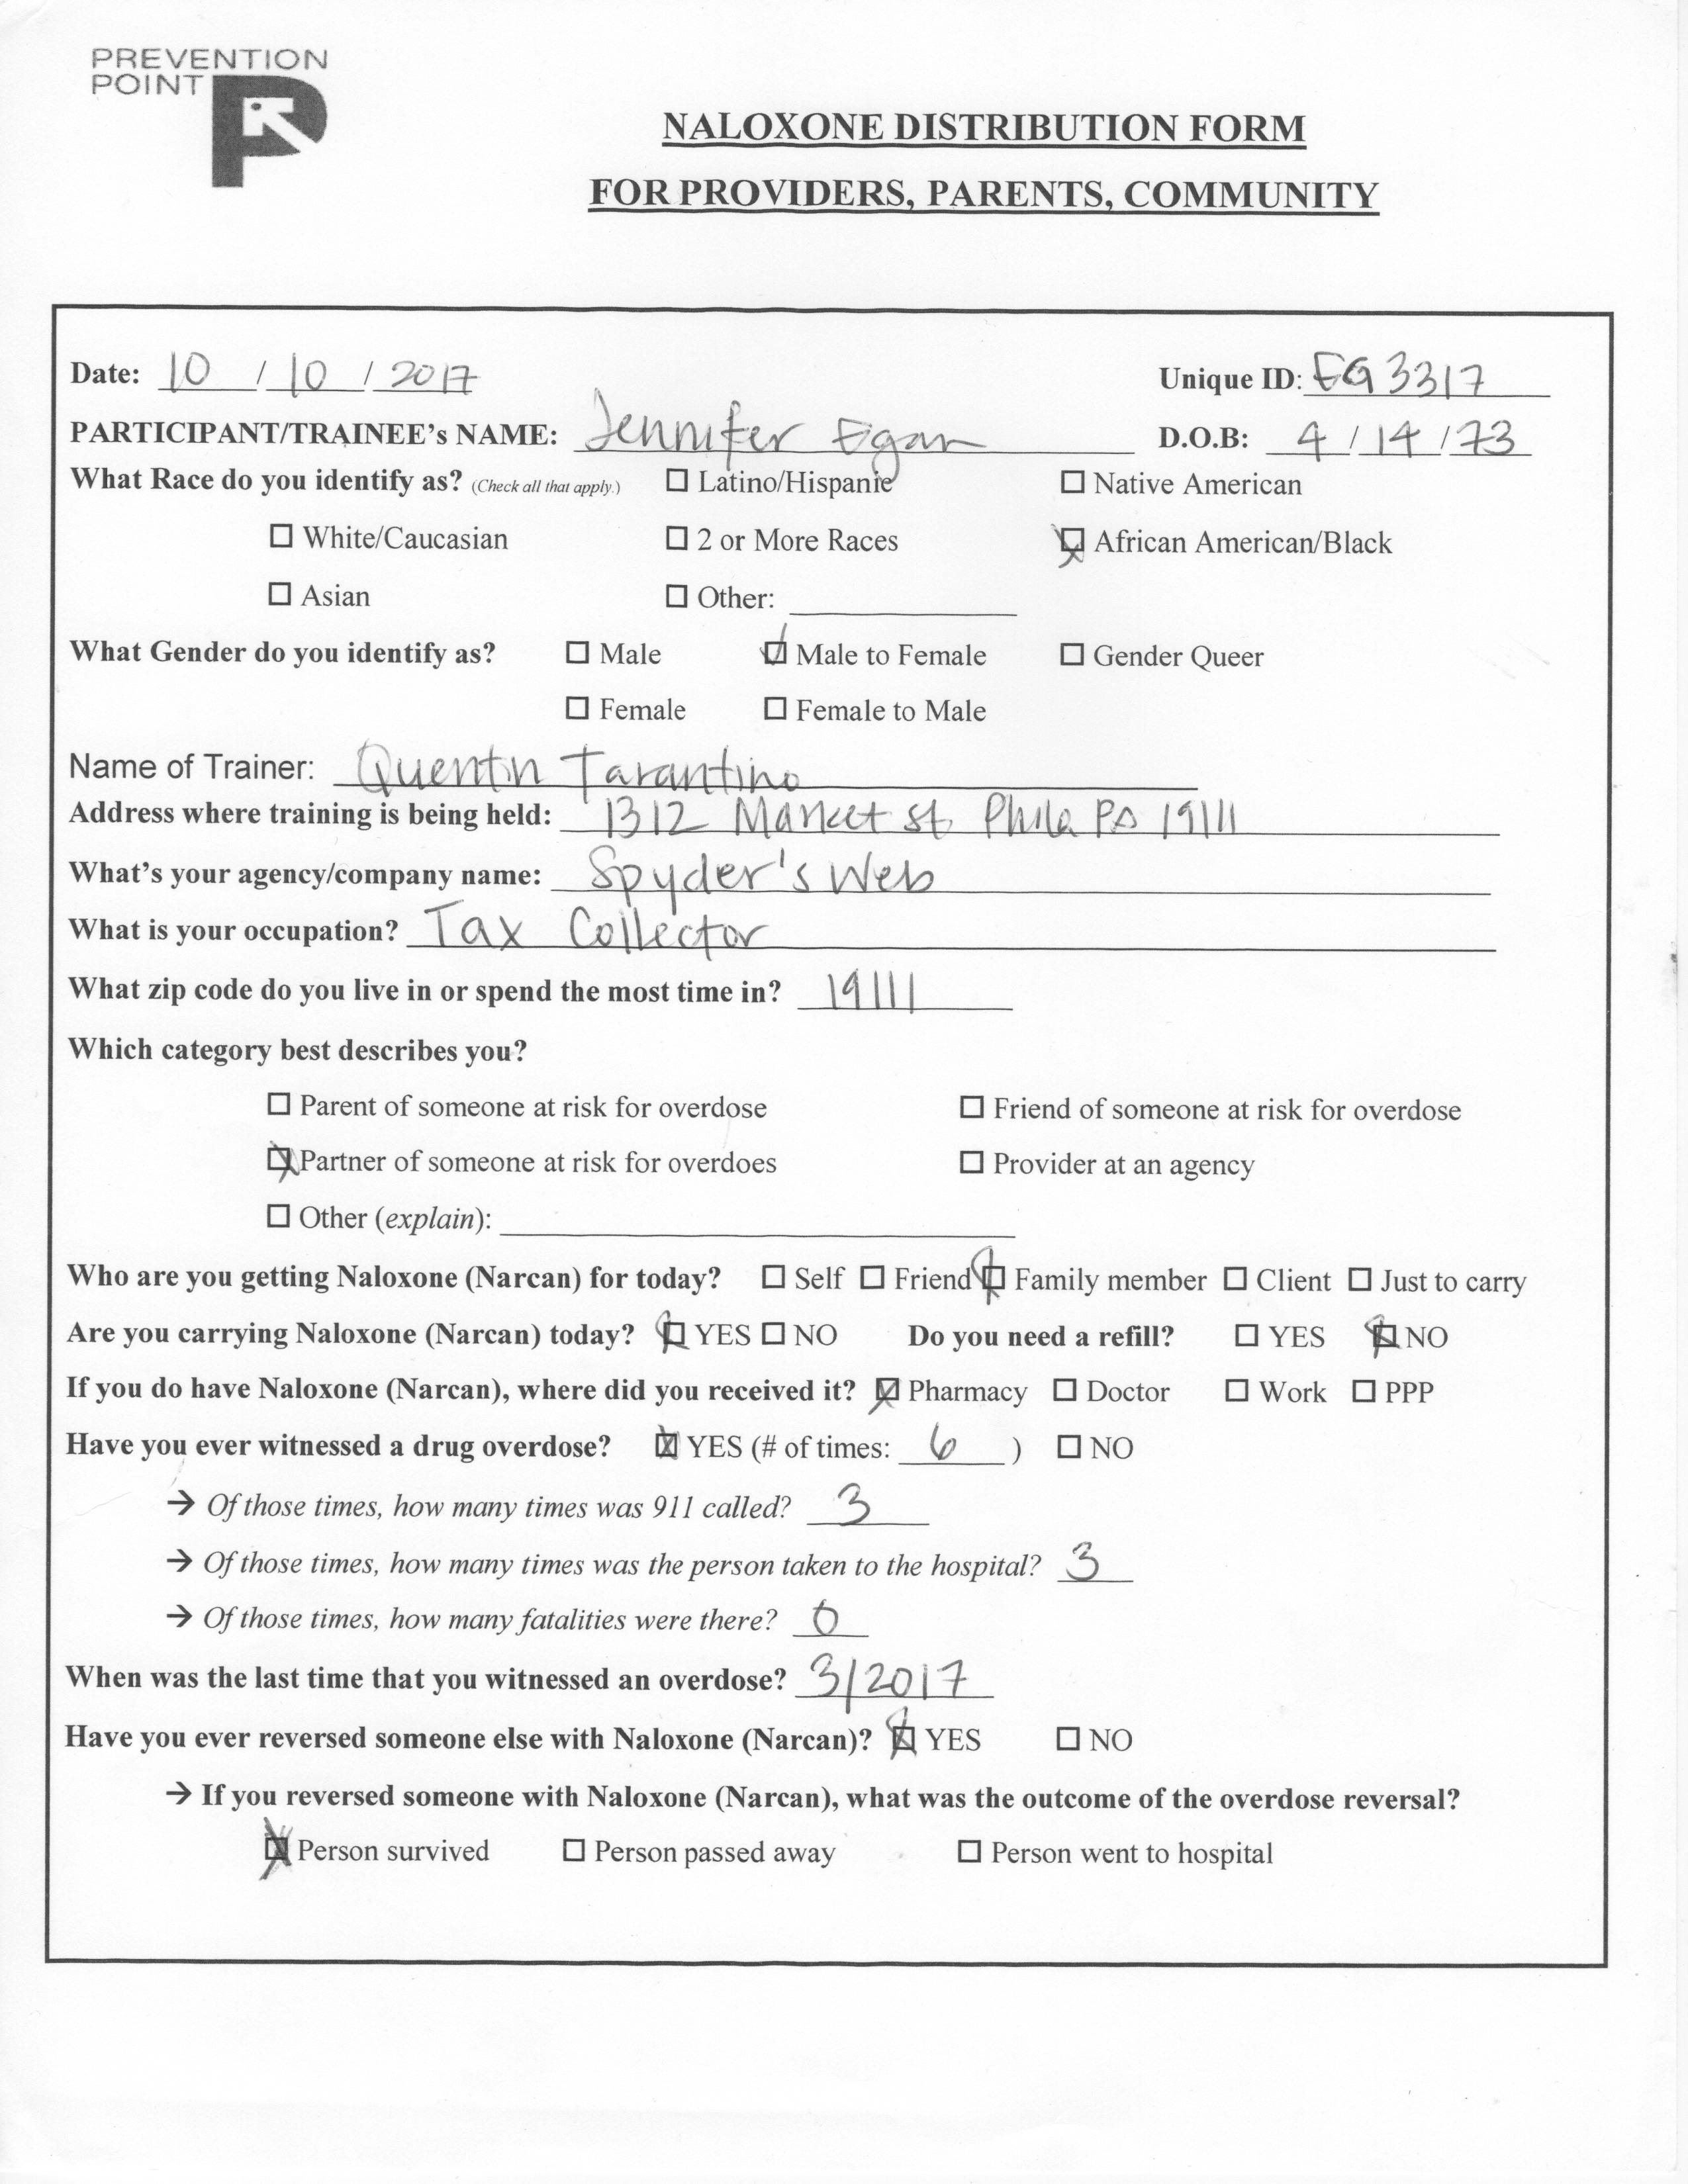 PREVENTION
POINT
NALOXONE DISTRIBUTION FORM
FOR PROVIDERS, PARENTS, COMMUNITY
Date: 10 / 10 / 2017 Unique ID: EG3317
PARTICIPANT/TRAINEE's NAME: Jennifer Egan D.O.B: 4 / 14 / 73
What Race do you identify as? (Check all that apply.) ☐ Latino/Hispanic ☐ Native American
☐ White/Caucasian ☐ 2 or More Races ☒ African American/Black
☐ Asian ☐ Other: ____
What Gender do you identify as? ☐ Male ☑ Male to Female ☐ Gender Queer
☐ Female ☐ Female to Male
Name of Trainer: Quentin Tarantino
Address where training is being held: 1312 Market St Phila PA 19111
What's your agency/company name: Spyder's Web
What is your occupation? Tax Collector
What zip code do you live in or spend the most time in? 19111
Which category best describes you?
☐ Parent of someone at risk for overdose ☐ Friend of someone at risk for overdose
☒ Partner of someone at risk for overdoes ☐ Provider at an agency
☐ Other (explain): ____
Who are you getting Naloxone (Narcan) for today? ☐ Self ☐ Friend ☒ Family member ☐ Client ☐ Just to carry
Are you carrying Naloxone (Narcan) today? ☒ YES ☐ NO Do you need a refill? ☐ YES ☒ NO
If you do have Naloxone (Narcan), where did you received it? ☒ Pharmacy ☐ Doctor ☐ Work ☐ PPP
Have you ever witnessed a drug overdose? ☒ YES (# of times: 6 ) ☐ NO
→ Of those times, how many times was 911 called? 3
→ Of those times, how many times was the person taken to the hospital? 3
→ Of those times, how many fatalities were there? 0
When was the last time that you witnessed an overdose? 3/2017
Have you ever reversed someone else with Naloxone (Narcan)? ☒ YES ☐ NO
→ If you reversed someone with Naloxone (Narcan), what was the outcome of the overdose reversal?
☒ Person survived ☐ Person passed away ☐ Person went to hospital